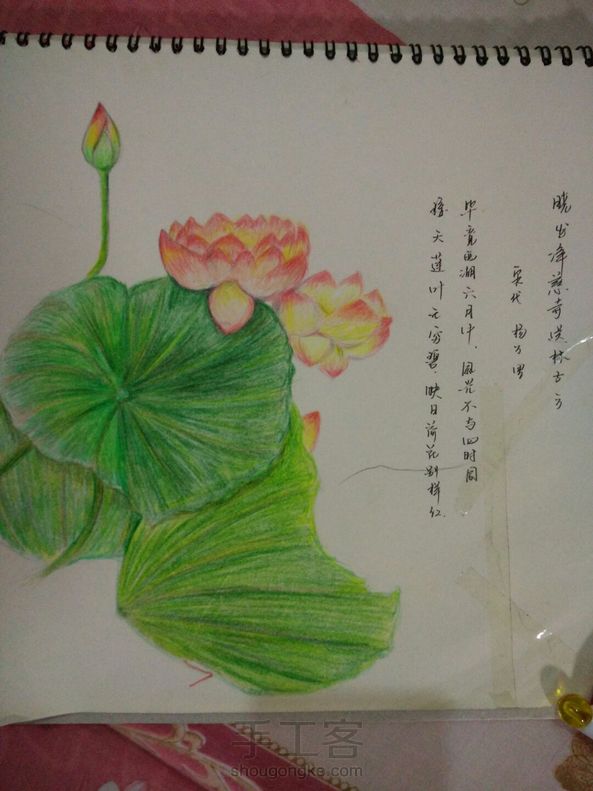 晓出净慈寺送林子方
宋代 杨万里
毕竟西湖六月中，风光不与四时同
接天莲叶无穷碧，映日荷花别样红.
手工客
shougongke.com